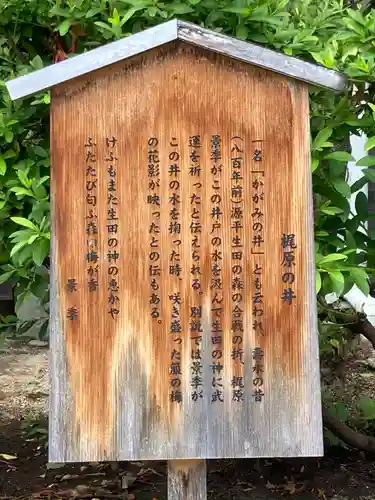 梶原の井
一名「かがみの井」とも云われ、壽永の昔
(八百年前)源平生田の森の合戦の折、梶原
景季がこの井戸の水を汲んで生田の神に武
運を祈ったと伝えられる。別説では景季が
この井の水を掬った時、咲き盛った箙の梅
の花影が映ったとの伝もある。
けふもまた生田の神の恵かや
ふたたび匂ふ森の梅が香
景季